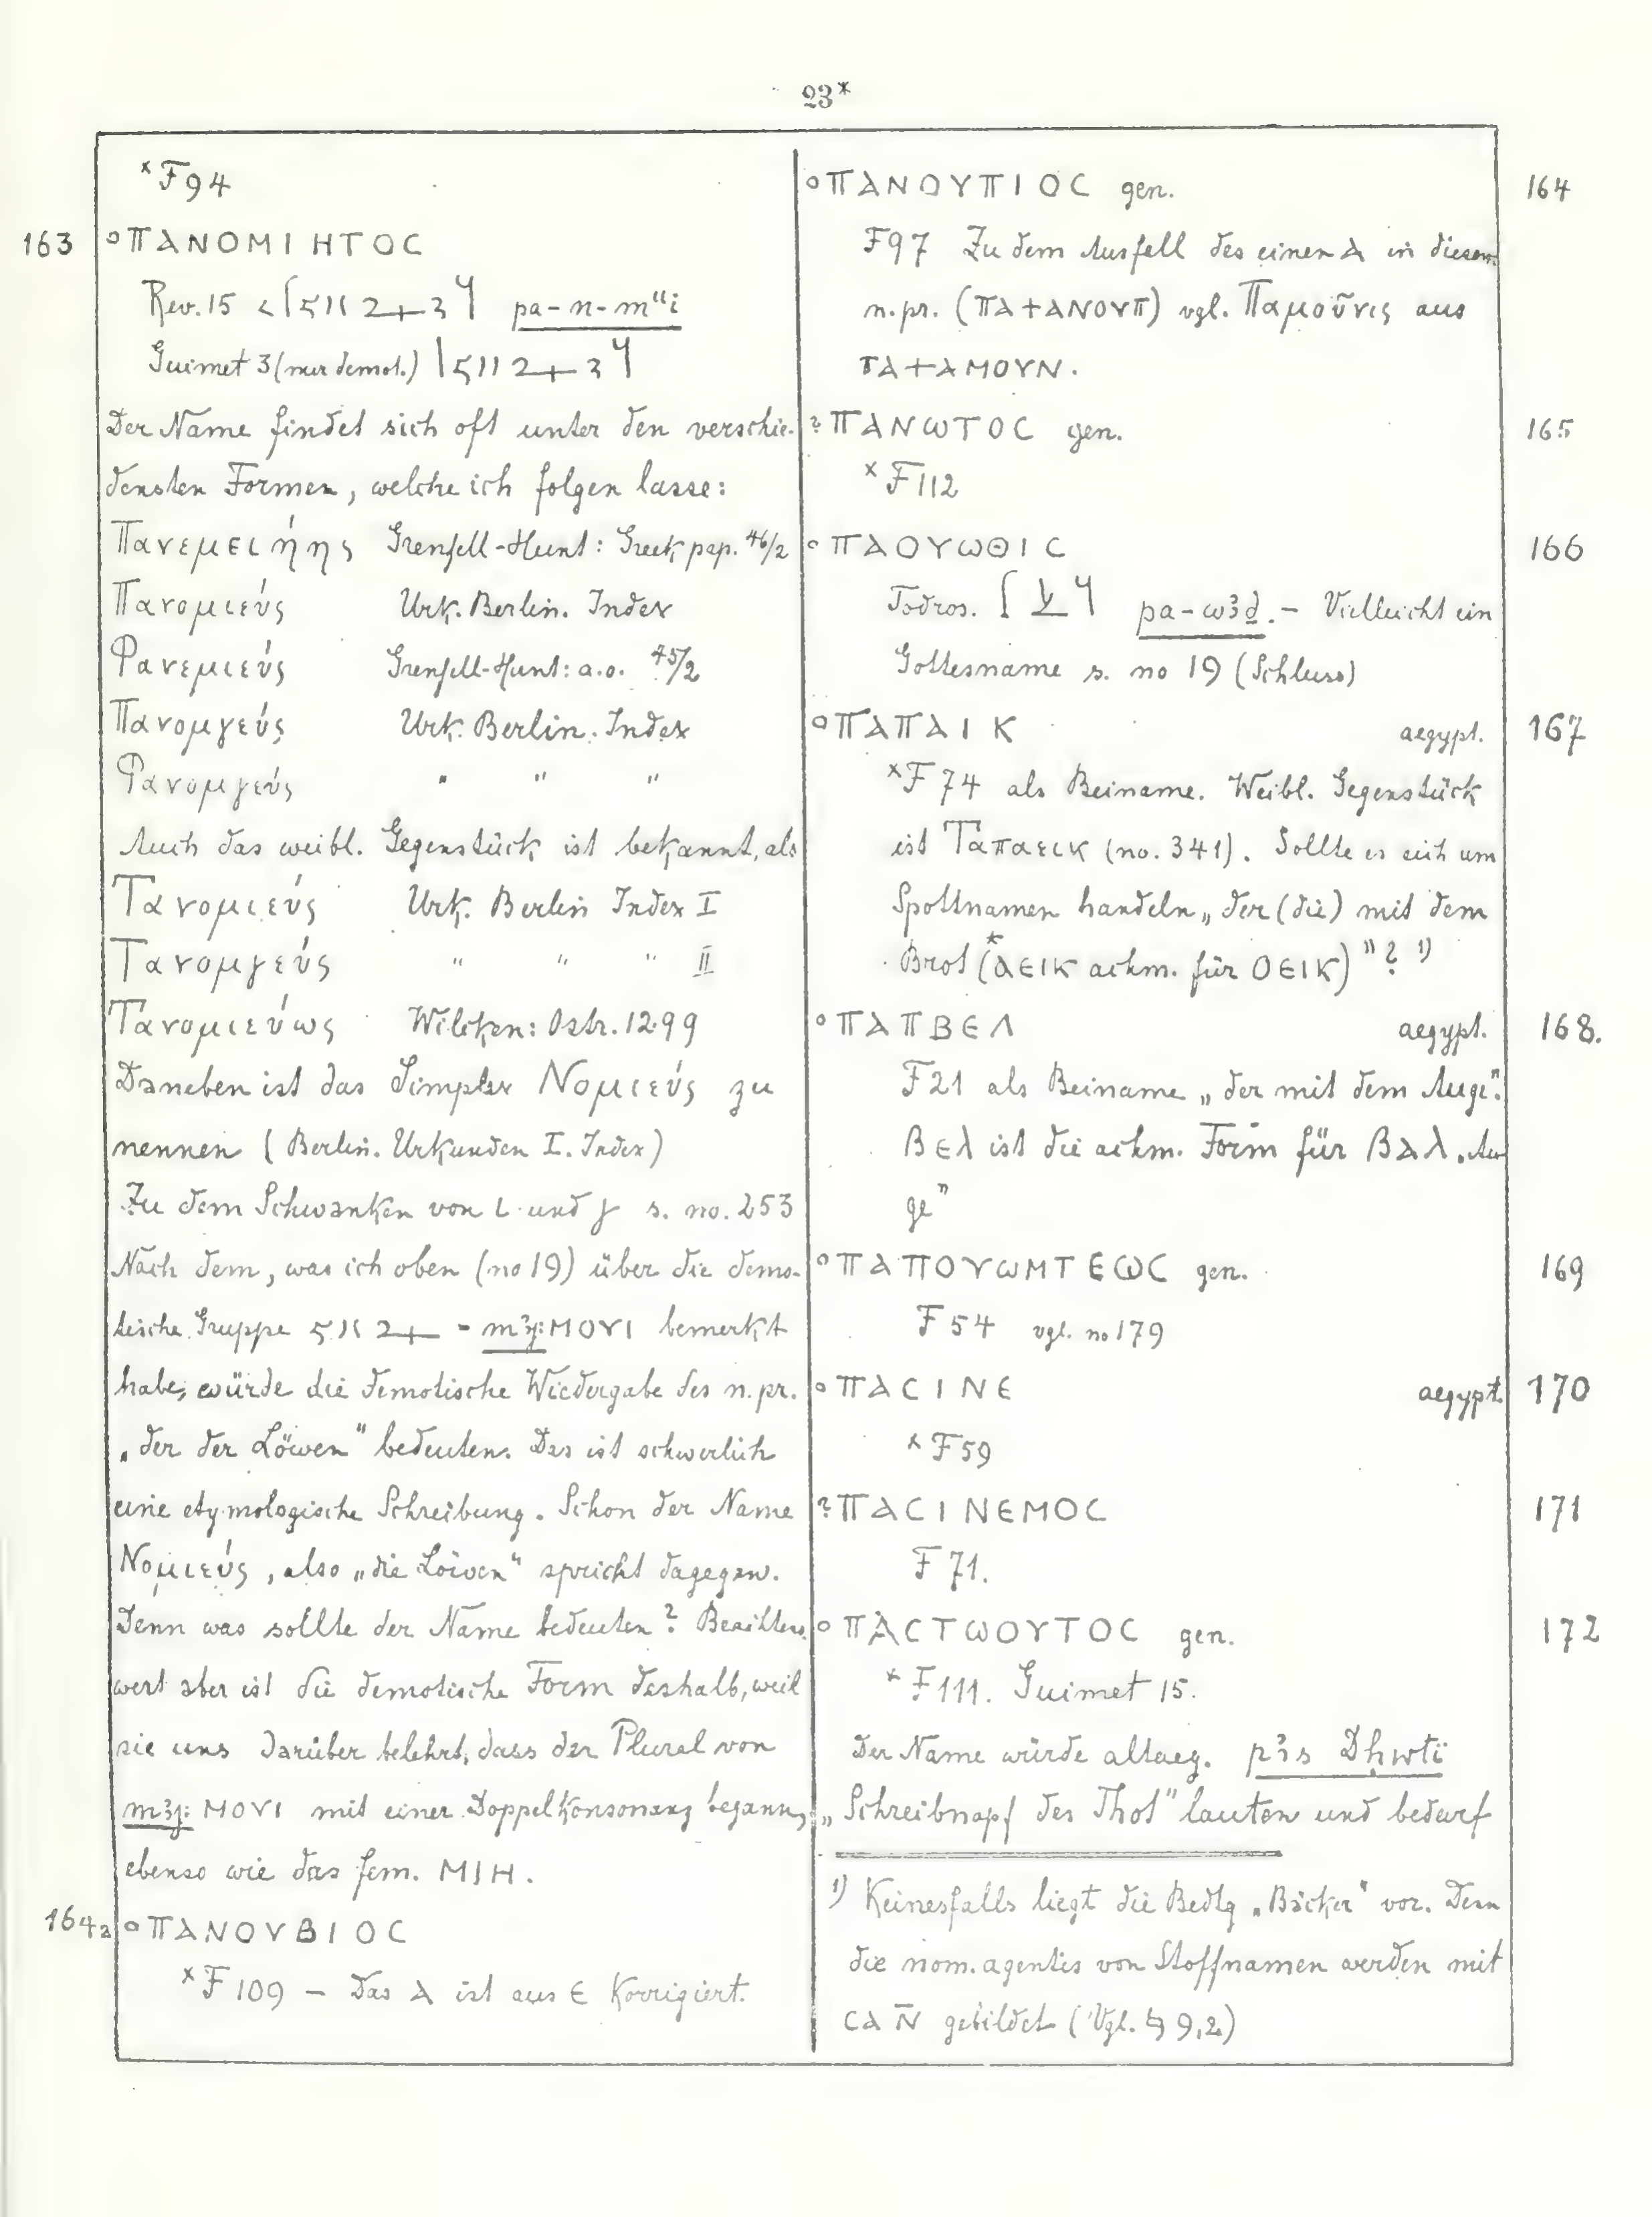 23*
*F94
163 °ΠΑΝΟΜΙΗΤΟС
Rev. 15 pa-n-m"i
Guimet 3 (nur demot.)
Der Name findet sich oft unter den verschie-
densten Formen, welche ich folgen lasse:
Πανεμειήης Grenfell-Hunt: Greek pap. 46/2
Πανομιεύς Urk. Berlin. Index
Φανεμιεύς Grenfell-Hunt: a.o. 45/2
Πανομγεύς Urk. Berlin. Index
Φανομγεύς " " "
Auch das weibl. Gegenstück ist bekannt, als
Τανομιεύς Urk. Berlin Index I
Τανομγεύς " " " II
Τανομιεύως Wilcken: Ostr. 1299
Daneben ist das Simplex Νομιεύς zu
nennen (Berlin. Urkunden I. Index)
Zu dem Schwanken von ι und γ s. no. 253
Nach dem, was ich oben (no 19) über die demo-
tische Gruppe = m3j: ΜΟΥΙ bemerkt
habe, würde die demotische Wiedergabe des n.pr.
„der der Löwen" bedeuten. Das ist schwerlich
eine etymologische Schreibung. Schon der Name
Νομιεύς, also „die Löwen" spricht dagegen.
Denn was sollte der Name bedeuten? Beachtens-
wert aber ist die demotische Form deshalb, weil
sie uns darüber belehrt, dass der Plural von
m3j: ΜΟΥΙ mit einer Doppelkonsonanz begann,
ebenso wie das fem. ΜΙΗ.
164a °ΠΑΝΟΥΒΙΟС
*F109 – Das Α ist aus Є korrigiert.
°ΠΑΝΟΥΠΙΟС gen. 164
F97 Zu dem Ausfall des einen Α in diesem
n.pr. (ΠΑ+ΑΝΟΥΠ) vgl. Παμοῦνις aus
ΠΑ+ΑΜΟΥΝ.
?ΠΑΝΩΤΟС gen. 165
*F112
°ΠΑΟΥΩΘΙС 166
Todros. pa-w3ḏ. – Vielleicht ein
Gottesname s. no 19 (Schluss)
°ΠΑΠΑΙΚ aegypt. 167
*F74 als Beiname. Weibl. Gegenstück
ist Ταπαεικ (no. 341). Sollte es sich um
Spottnamen handeln „der (die) mit dem
Brot (*ΑЄΙΚ achm. für ΟЄΙΚ)"? 1)
°ΠΑΠΒЄΛ aegypt. 168.
F21 als Beiname „der mit dem Auge".
ΒЄλ ist die achm. Form für ΒΑλ „Au-
ge"
°ΠΑΠΟΥΩΜΤЄΩС gen. 169
F54 vgl. no 179
°ΠΑСΙΝЄ aegypt. 170
*F59
?ΠΑСΙΝЄΜΟС 171
F71.
°ΠΑСΤΩΟΥΤΟС gen. 172
*F111. Guimet 15.
Der Name würde altaeg. p3s Ḏḥwtï
„Schreibnapf des Thot" lauten und bedarf
1) Keinesfalls liegt die Bedtg „Bäcker" vor. Denn
die nom. agentis von Stoffnamen werden mit
СΑ Ν̄ gebildet (Vgl. § 9,2)